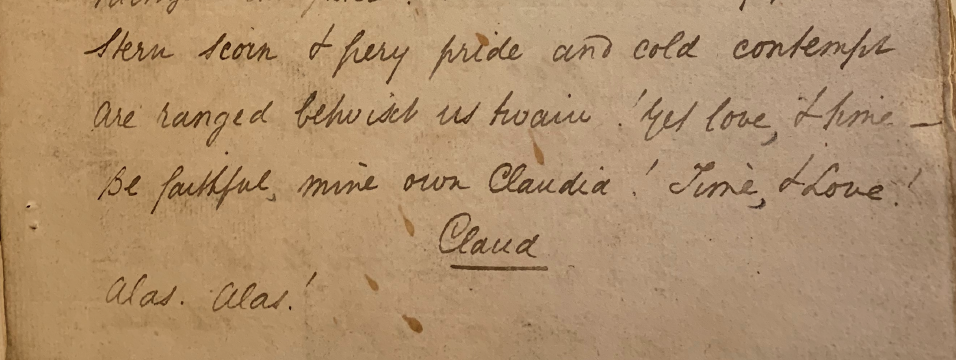 Stern scorn & fiery pride and cold contempt
are ranged betwixt us twain! Yet love, & time —
Be faithful, mine own Claudia! Time, & Love!
Claud
Alas. Alas!